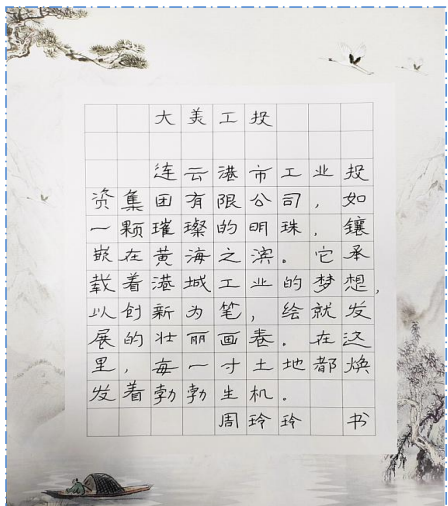 大美工投
连云港市工业投
资集团有限公司，如
一颗璀璨的明珠，镶
嵌在黄海之滨。它承
载着港城工业的梦想，
以创新为笔，绘就发
展的壮丽画卷。在这
里，每一寸土地都焕
发着勃勃生机。
周玲玲 书